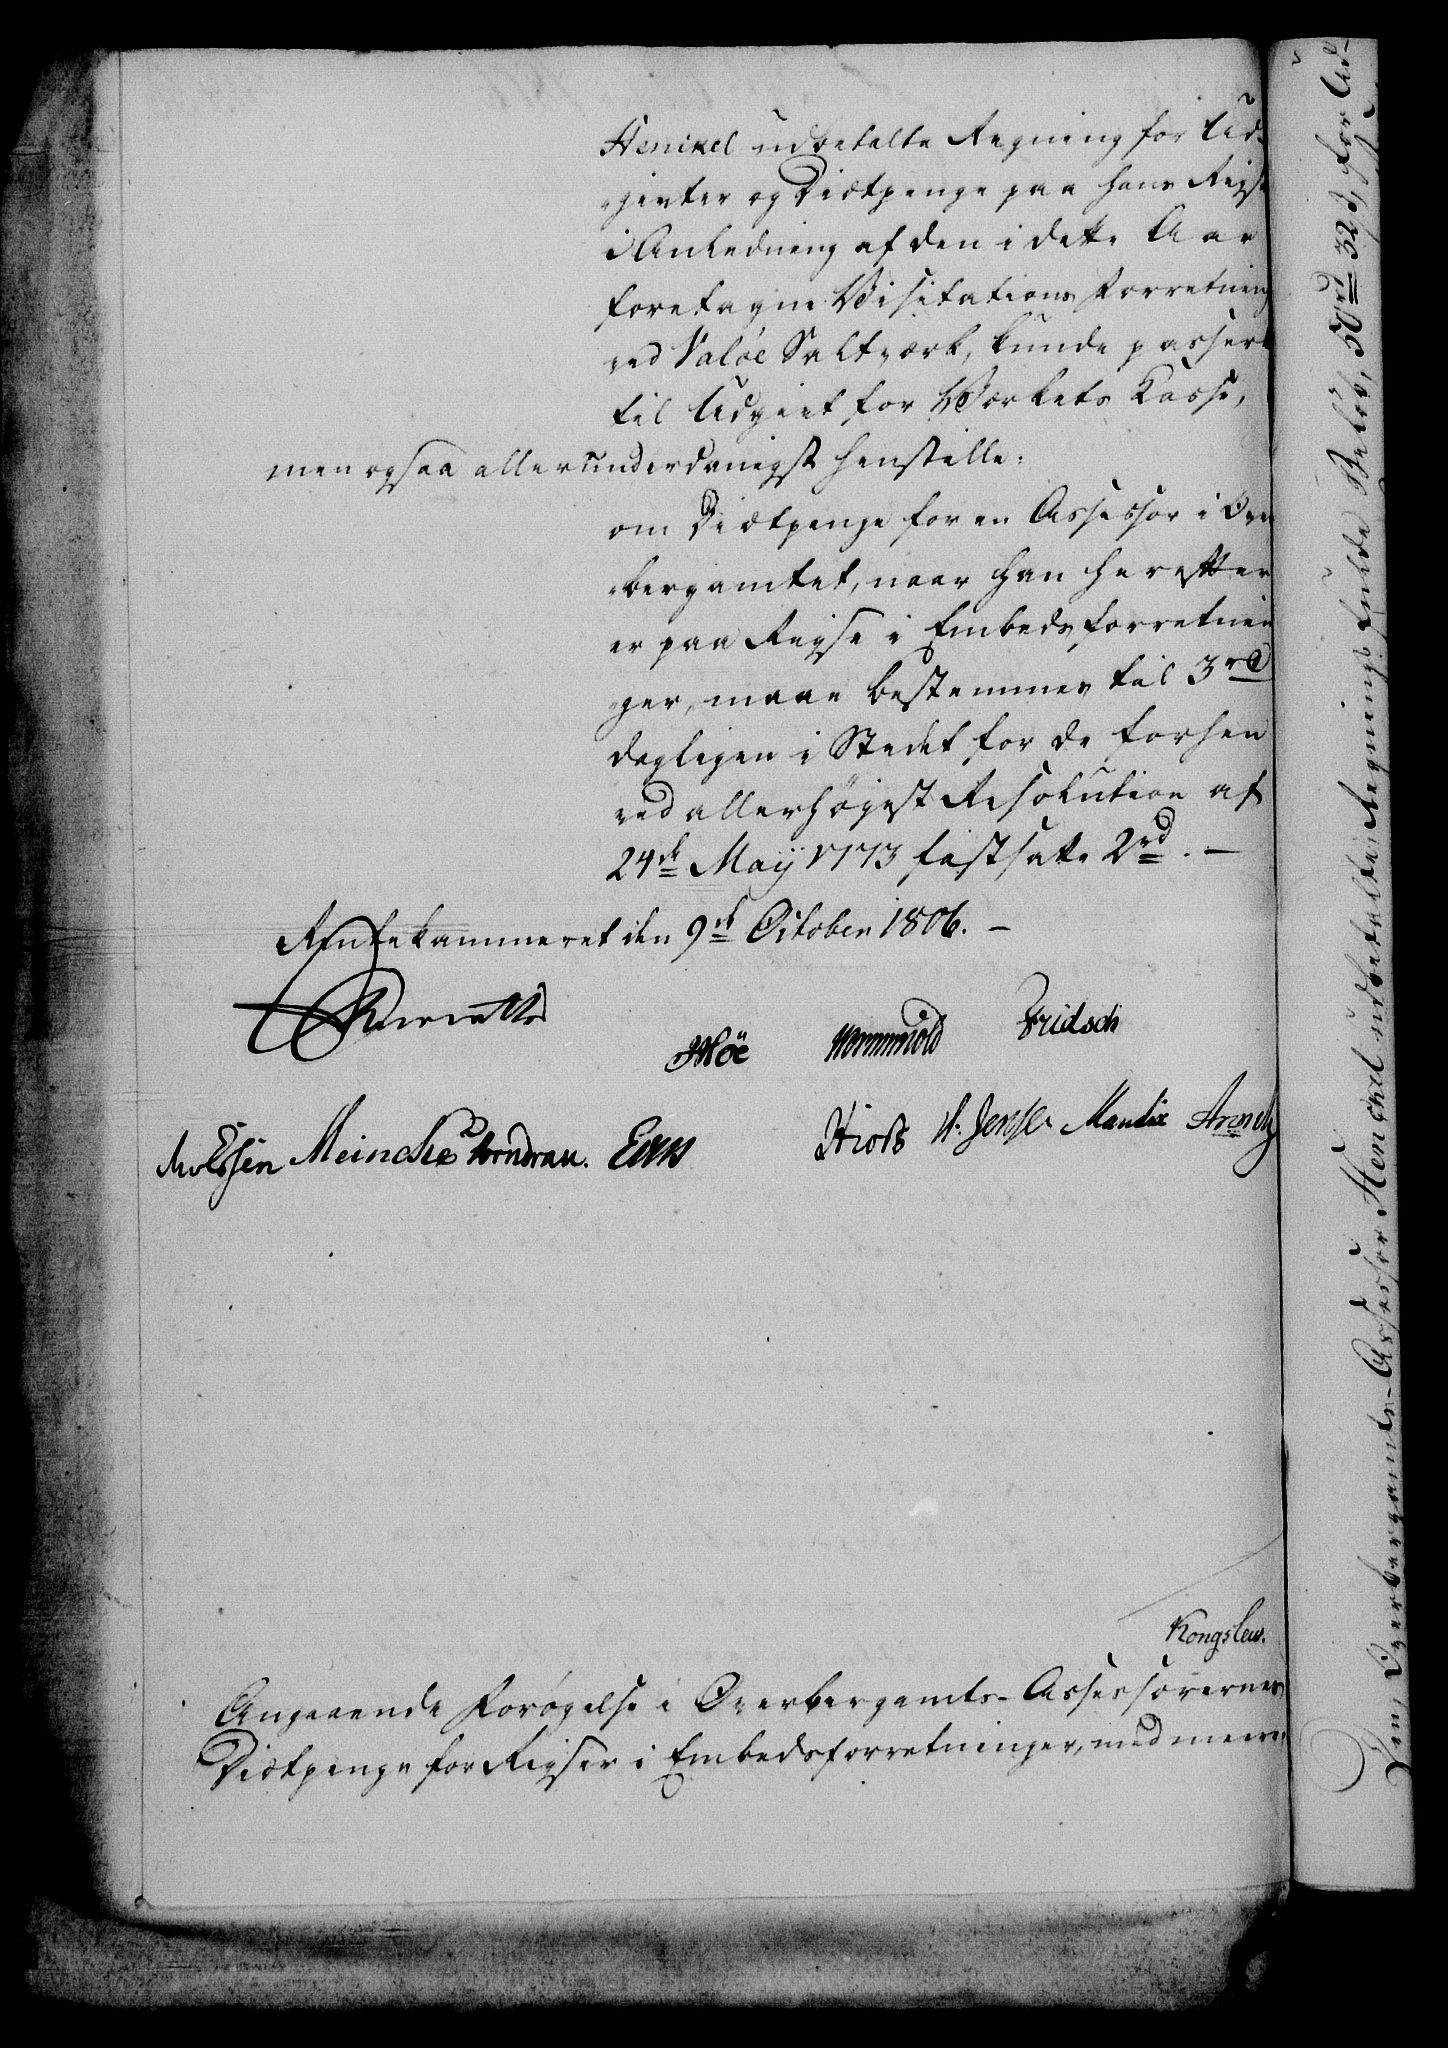 Henckel udbetalte Regning for Ud-
givter og Diætpenge paa hans Reise
i Anledning af den i dette Aar
foretagne Visitations Forretning
ved Valøe Saltværk, kunde passere
til Udgivt for Værkets Kasse,
men ogsaa allerunderdanigst henstille:
om Diætpenge for en Assessor i Over
bergamtet, naar han herefter
er paa Reyse i Embeds forretnin
ger, maae bestemmes til 3 rd
dagligen i Stedet for de forhen
ved allerhøyest Resolution af
24de May 1773 fastsatte 2 rd. —
Rentekammeret den 9de October 1806. —
Wormskiold Fridsch
v Essen Meincke Vorndran.
Hiort H. Jensen Manthe
Kongslew.
Angaaende Forøgelse i Overbergamts-Assessorernes
Diætpenge for Reyser i Embedsforretninger, med meere.
Den Overbergamts-Assessor Henckel udbetalte Regnings fulde Beløb, 50 rd 32 s, for Ud-